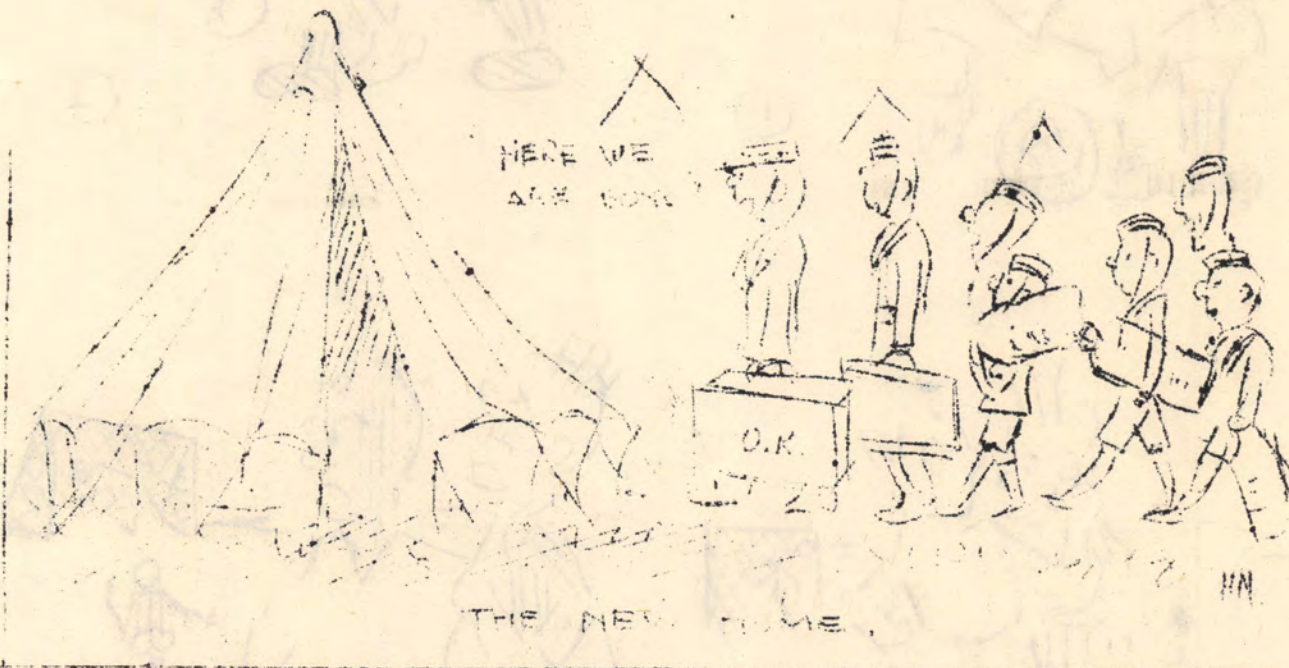 HERE WE
ARE BOYS
O.K.
THE NEW HOME.
HM